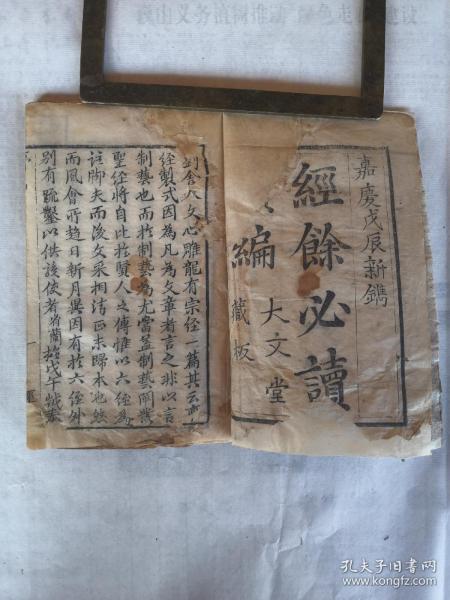 嘉慶戊辰新鐫
經餘必讀
編
大文堂
藏板
舍人文心雕龍有宗經一篇其云
經製式因為凡為文章者言之非以言
制藝也而於制藝為尤當制藝闡發
聖經將自比於賢人之傳惟以六經為
註脚夫而後文采相正末歸本也然
而風會所趨日新月異因有於六經外
別有疏鑿以供該使者蘭於戊午
孔夫子旧书网
www.kongfz.com